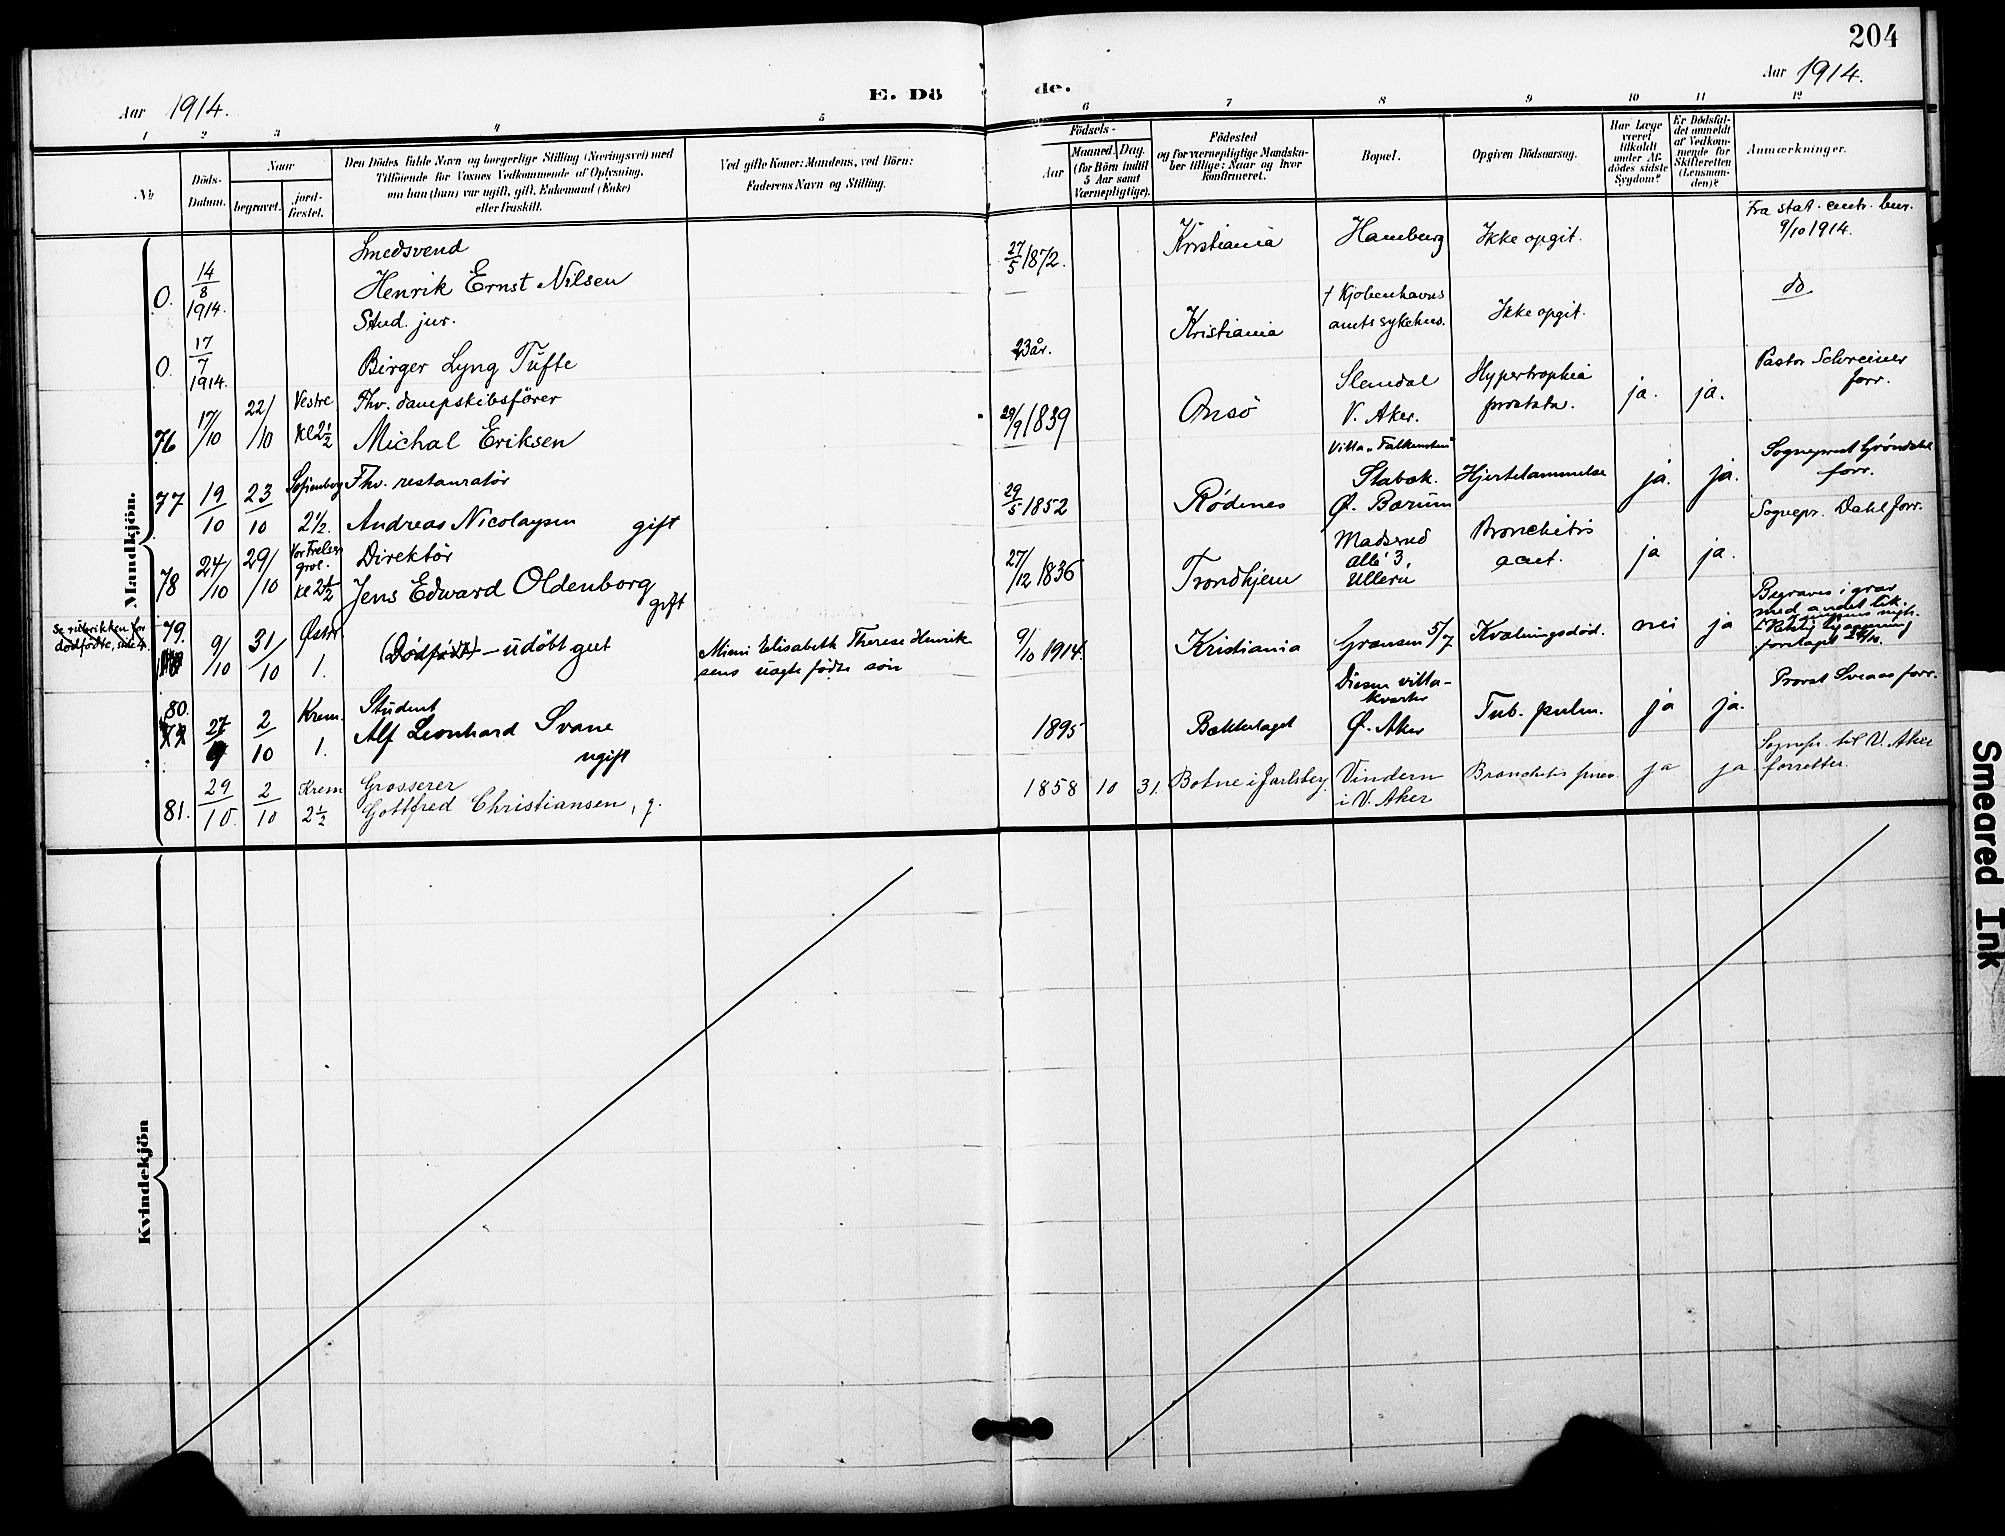 204
Aar 1914.
E. Dö
de.
Aar 1914.
1 2 3 4 5 6 7 8 9 10 11 12
No
Döds-
Datum.
Naar
begravet.
jord-
fæstet.
Den Dödes fulde Navn og borgerlige Stilling (Næringsvei) med
Tilföiende for Voxnes Vedkommende af Oplysning,
om han (hun) var ugift, gift, Enkemand (Enke)
eller fraskilt.
Ved gifte Koner: Mandens, ved Börn:
Faderens Navn og Stilling.
Födsels-
Aar
Maaned. Dag.
(for Börn indtil
5 Aar samt
Værnepligtige).
Födested
og for værnepligtige Mandska-
ber tillige: Naar og hvor
konfirmeret.
Bopæl.
Opgiven Dödsaarsag.
Har Læge
været
tilkaldt
under Af-
dödes sidste
Sygdom?
Er Dödsfal-
det anmeldt
af Vedkom-
mende for
Skifteretten
(Lensman-
den)?
Anmærkninger.
Mandkjön.
O. 14/8 1914.
Smedsvend
Henrik Ernst Nilsen
27/5 1872.
Kristiania
Hamburg
Ikke opgit.
Fra stat. centr. bur.
9/10 1914.
O. 17/7 1914.
Stud. jur.
Birger Lyng Tufte
23 år.
Kristiania
† Kjøbenhavns
amts sykehus.
Ikke opgit.
do
76 17/10 22/10 Vestre kl 2½
Fhv. dampskibsfører
Michal Eriksen
29/9 1839
Onsö
Slemdal
V. Aker.
Hypertrophia
prostata.
ja. ja.
Pastor Schreiner
forr.
77 19/10 23/10 Sofienberg 2½
Fhv. restauratør
Andreas Nicolaysen gift
29/5 1852
Rødenes
Villa "Falkensten"
Stabæk.
Ø. Bærum
Hjertelammelse
ja. ja.
Sogneprest Grøndahl
forr.
78 24/10 29/10 Vor Frelsers grav. kl 2½
Direktör
Jens Edward Oldenborg
gift
27/12 1836
Trondhjem
Madserud
allé 3,
Ullern
Bronchitis
acut.
ja ja.
Sognepr. Dahl forr.
Se rubrikken for
dødfødte, side 4.
79. 9/10 31/10 Østre 1.
(Dødfødt) – udøbt gut
Mimi Elisabeth Therese Henrik
sens uægte fødte søn
9/10 1914.
Kristiania
Grænsen 5/7
Kvælningsdød.
nei ja
Begraves i grav
med andet lik.
80. 27/9 2/10 Krem. 1.
Student
Alf Leonhard Svane
ugift
1895
Bækkelaget
villa-
kvarter
Ø. Aker
Tub. pulm.
ja ja.
Provst Sveaas forr.
81. 29/10. 2/10 Krem 2½
Grosserer
Gottfred Christiansen, g.
1858 10 31.
Botne i Jarlsberg.
Vindern
i V. Aker
Bronchitis
ja ja
Sognepr. til V. Aker
forretter.
Kvindekjön
Smeared Ink